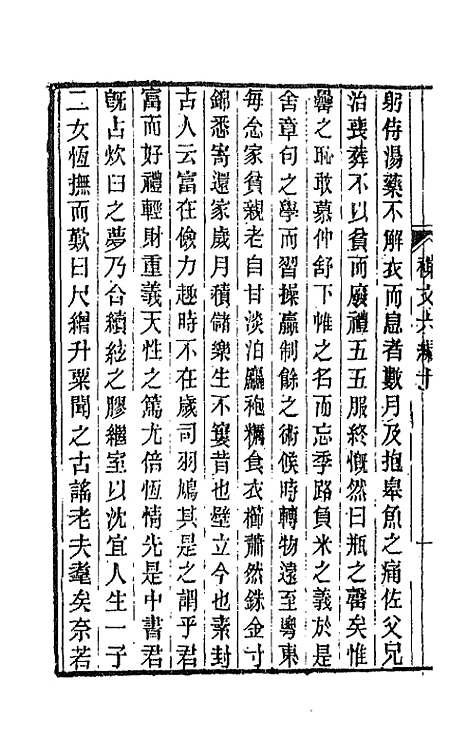 躬侍湯藥不解衣而息者數月及抱皋魚之痛佐父兄
治喪葬不以貧而廢禮五五服終慨然曰瓶之罄矣惟
罍之恥敢慕仲舒下帷之名而忘季路負米之義於是
舍章句之學而習操贏制餘之術候時轉物遠至粵東
每念家貧親老自甘淡泊羸袍糲食衣櫛蕭然銖金寸
錦悉寄還家歲月積儲樂生不襄昔也壁立今也素封
古人云富在儉力趣時不在歲司羽鳩其是之謂乎君
富而好禮輕財重義天性之篤尤倍恆情先是中書君
旣占炊臼之夢乃合續絃之膠繼室以沈宜人生一子
二女恆撫而歎曰尺繒升粟聞之古謠老夫耄矣奈若